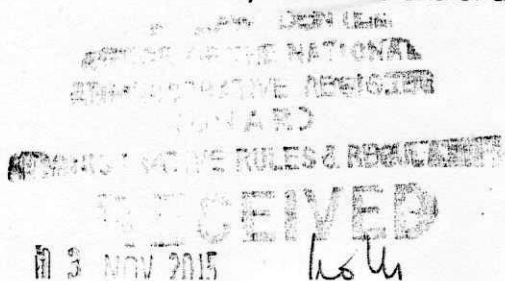 LAW CENTER
OFFICE OF THE NATIONAL
ADMINISTRATIVE REGISTER
ADMINISTRATIVE RULES & REGULATIONS
RECEIVED
3 NOV 2015